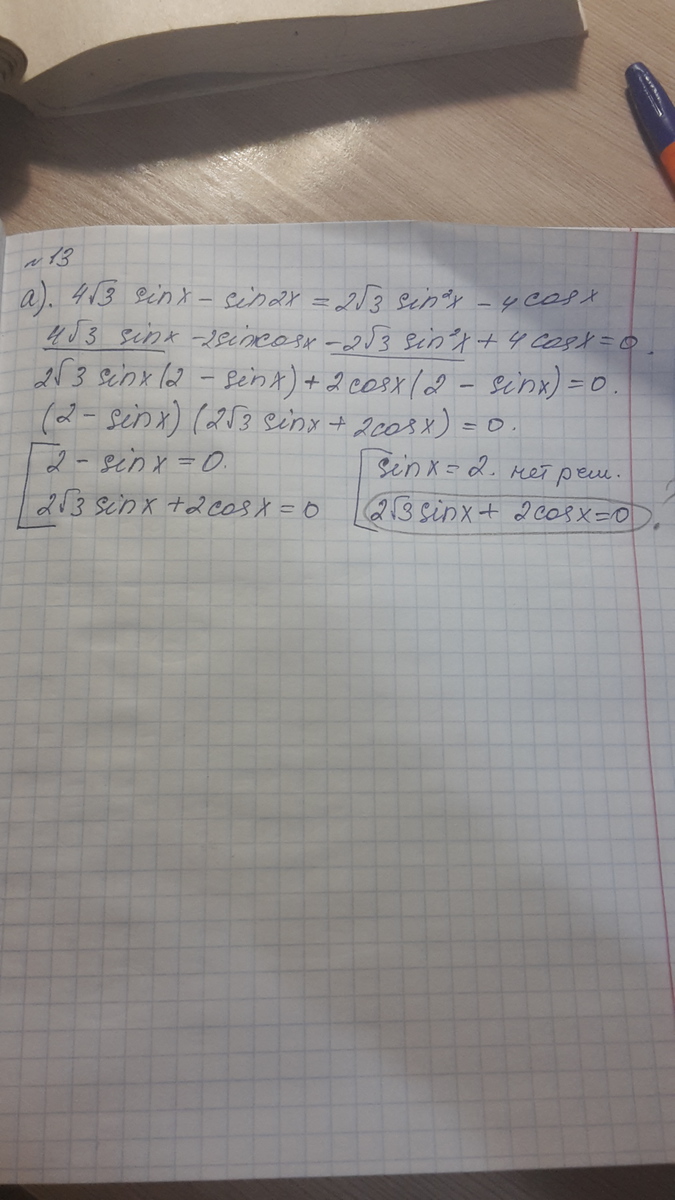 №13
а). 4√3 sinx - sin2x = 2√3 sin²x - 4cosx
4√3 sinx - 2sinxcosx - 2√3 sin²x + 4cosx = 0.
2√3 sinx(2 - sinx) + 2cosx(2 - sinx) = 0.
(2 - sinx) (2√3 sinx + 2cosx) = 0.
[ 2 - sinx = 0. [ sinx = 2. нет реш.
2√3 sinx + 2cosx = 0 2√3 sinx + 2cosx = 0 ?